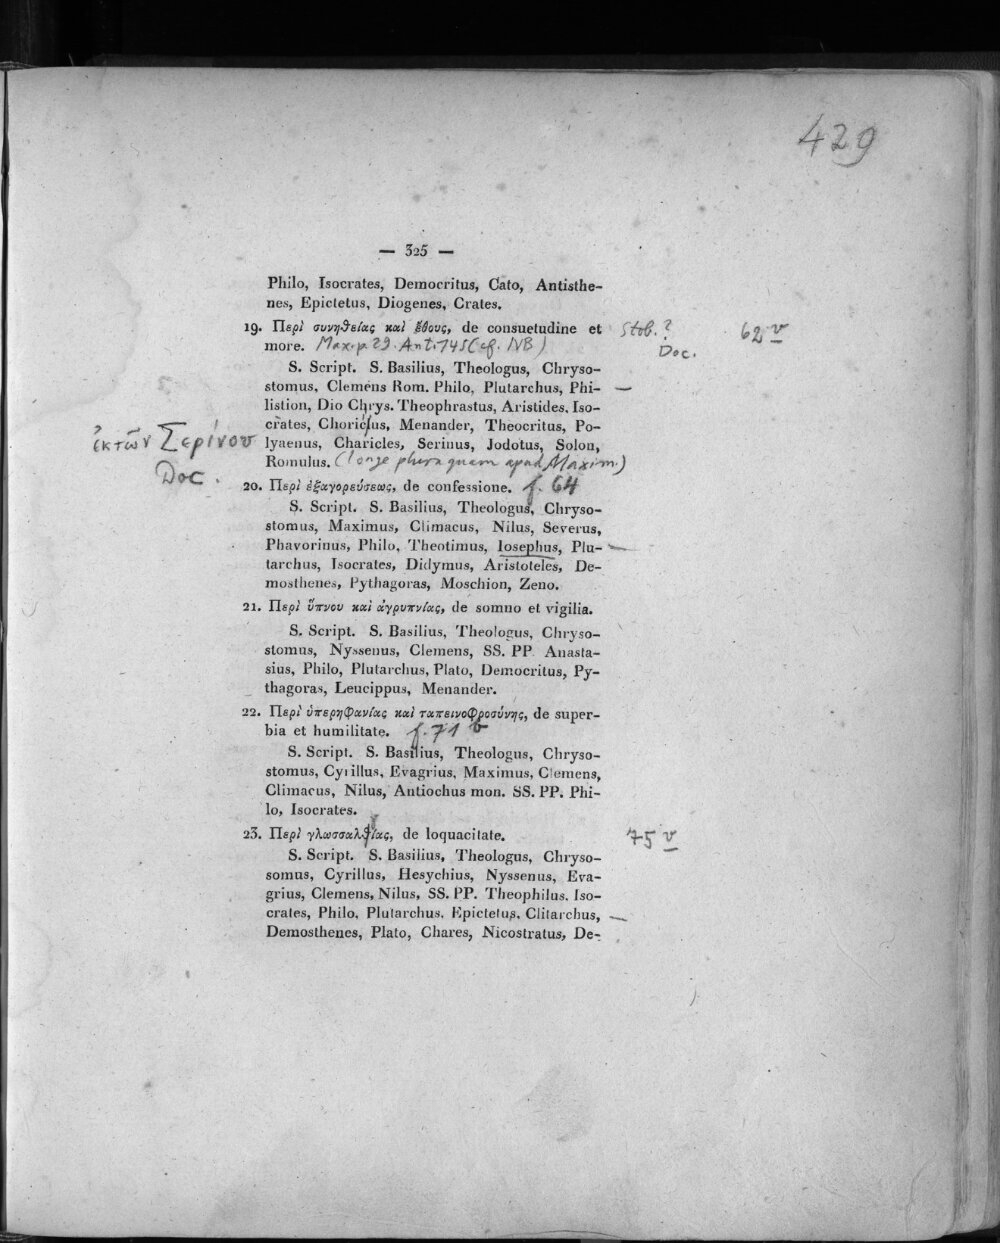 429
— 325 —
Philo, Isocrates, Democritus, Cato, Antisthe-
nes, Epictetus, Diogenes, Crates.
19. Περὶ συνηθείας καὶ ἔθους, de consuetudine et Stob.? 62 v
more. Max. p. 29. Ant. 745 (cf. NB) Doc.
S. Script. S. Basilius, Theologus, Chryso-
stomus, Clemens Rom. Philo, Plutarchus, Phi- —
listion, Dio Chrys. Theophrastus, Aristides, Iso-
crates, Choricius, Menander, Theocritus, Po-
ἐκ τῶν Σερίνου lyaenus, Charicles, Serinus, Jodotus, Solon,
Doc. Romulus. (longe plura quam apud Maxim.)
20. Περὶ ἐξαγορεύσεως, de confessione. f. 64
S. Script. S. Basilius, Theologus, Chryso-
stomus, Maximus, Climacus, Nilus, Severus,
Phavorinus, Philo, Theotimus, Iosephus, Plu- —
tarchus, Isocrates, Didymus, Aristoteles, De-
mosthenes, Pythagoras, Moschion, Zeno.
21. Περὶ ὕπνου καὶ ἀγρυπνίας, de somno et vigilia.
S. Script. S. Basilius, Theologus, Chryso-
stomus, Nyssenus, Clemens, SS. PP. Anasta-
sius, Philo, Plutarchus, Plato, Democritus, Py-
thagoras, Leucippus, Menander.
22. Περὶ ὑπερηφανίας καὶ ταπεινοφροσύνης, de super-
bia et humilitate. f. 71 v
S. Script. S. Basilius, Theologus, Chryso-
stomus, Cyrillus, Evagrius, Maximus, Clemens,
Climacus, Nilus, Antiochus mon. SS. PP. Phi-
lo, Isocrates.
23. Περὶ γλωσσαλγίας, de loquacitate. 75 v
S. Script. S. Basilius, Theologus, Chryso-
somus, Cyrillus, Hesychius, Nyssenus, Eva-
grius, Clemens, Nilus, SS. PP. Theophilus, Iso-
crates, Philo, Plutarchus, Epictetus, Clitarchus, —
Demosthenes, Plato, Chares, Nicostratus, De-